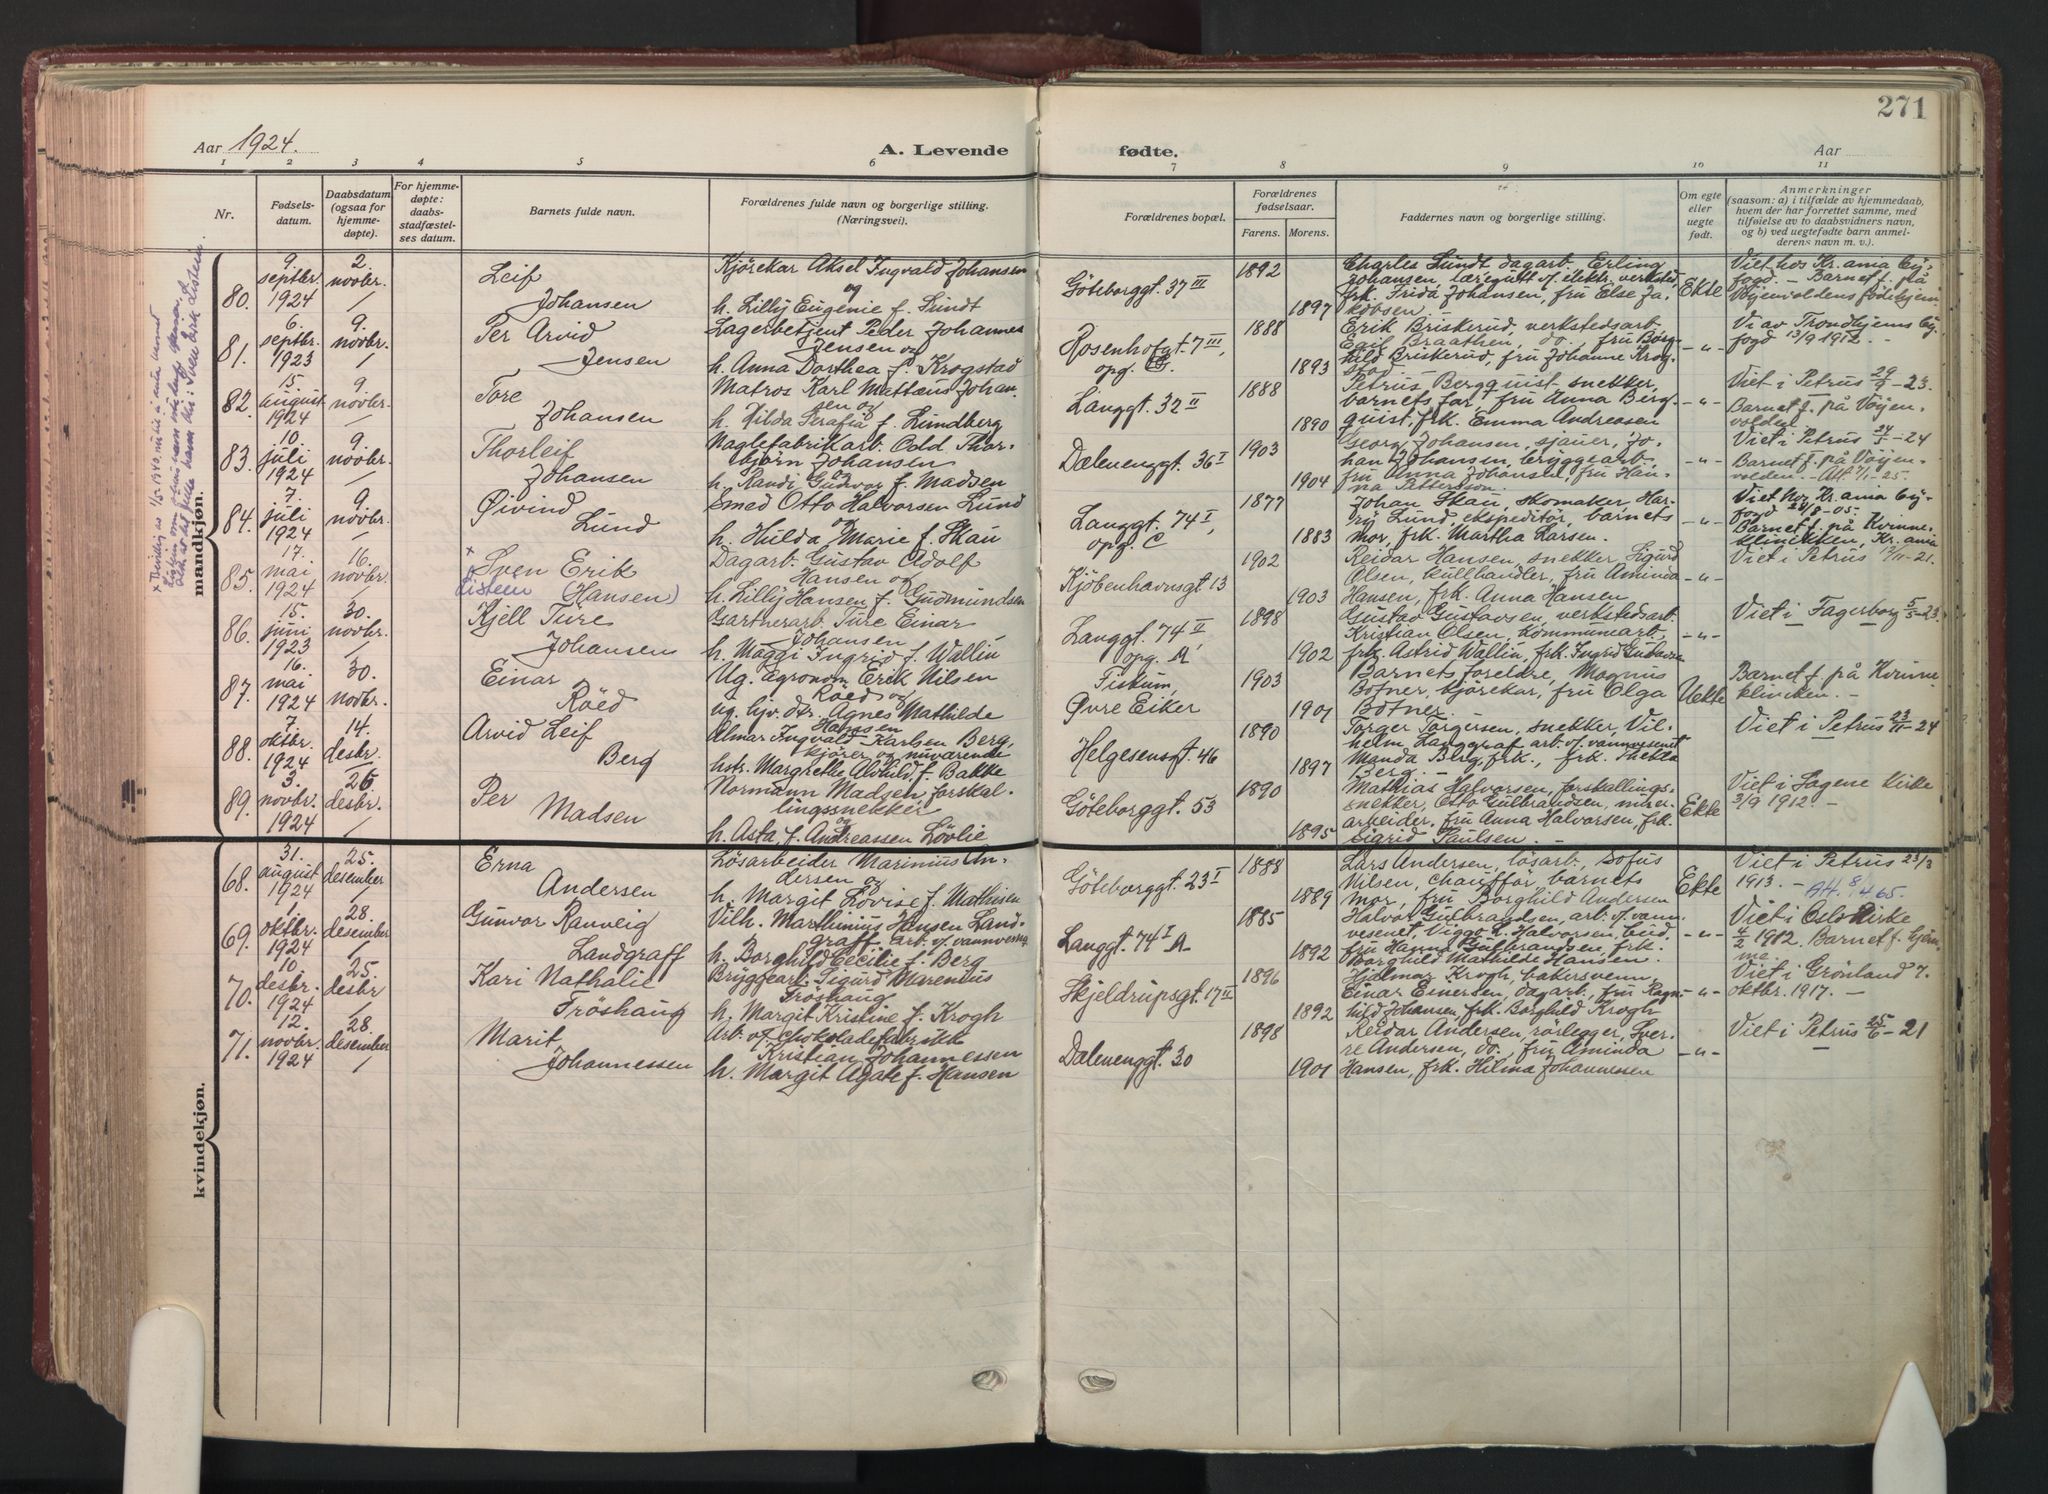 271
Aar 1924.
A. Levende fødte.
Aar
1 2 3 4 5 6 7 8 9 10 11
Nr.
Fødsels-
datum.
Daabsdatum
(ogsaa for
hjemme-
døpte).
For hjemme-
døpte:
daabs-
stadfæstel-
ses datum.
Barnets fulde navn.
Forældrenes fulde navn og borgerlige stilling.
(Næringsvei).
Forældrenes bopæl.
Forældrenes
fødselsaar.
Farens. Morens.
Faddernes navn og borgerlige stilling.
Om egte
eller
uegte
født.
Anmerkninger
(saasom: a) i tilfælde av hjemmedaab,
hvem der har forrettet samme, med
tilføielse av to daabsvidners navn,
og b) ved uegtefødte barn anmel-
derens navn m. v.).
mandkjøn.
80.
9.
septbr.
1924
2.
novbr.
/
Leif
Johansen
Kjörekar Aksel Ingvald Johansen
og
h. Lilly Eugenie f. Lundt
Göteborggt. 37 III
1892
1897
Charles Lundt dagarb. Erling
Johansen, læregutt v. elektr. verksted,
frk. Frida Johansen, fru Else Ja-
kobsen.
Ekte
Viet hos Kr.ania By-
fogd. – Barnet f. på
Vöyenvoldens fødehjem
81.
6.
septbr.
1923
9.
novbr.
/
Per Arvid
Jensen
Lagerbetjent Peder Johannes
Jensen og
h. Anna Dorthea f. Krogstad
Rosenhofgt. 7 III,
opg.
1888
1893
Erik Briskerud, verkstedsarb.
Egil Braathen, do., fru Borg-
hild Briskerud, fru Johanne Krog-
stad.
–"–
Vi av Trondhjems By-
fogd 13/9 1912. –
82.
15.
august
1924
9.
novbr.
/
Tore
Johansen
Matros Karl Mattæus Johan-
sen og
h. Hilda Serafia f. Lundberg
Langgt. 32 II
1888
1890
Petrus Bergquist snekker,
barnets far, fru Anna Berg-
quist, frk. Emma Andreasen
–"–
Viet i Petrus 29/9 – 23.
Barnet f. på Vöyen-
volden.
83.
10.
juli
1924
9.
novbr.
/
Thorleif
Johansen
Naglefabrikarb. Odd Thor-
björn Johansen
og
h. Randi Gudvor f. Madsen
Dælenenggt. 36 I
1903
1904
Georg Johansen, sjauer, Jo-
han Johansen, bryggearb.
fru Anna Johansen, fru Han-
na Pettersen.
–"–
Viet i Petrus 24/5 – 24
Barnet f. på Vöyen-
volden. –
84.
7.
juli
1924
9.
novbr.
/
Øivind
Lund
Smed Otto Halvorsen Lund
og
h. Hulda Marie f. Skau
Langgt. 74 I,
opg. C
1877
1883
Johan Skau, skomaker, Har-
ry Lund, ekspeditör, barnets
mor, frk. Martha Larsen.
–"–
Viet hos Kr.ania By-
fogd 28/8 – 05.
Barnet f. på Kvinne-
klinikken, Kr.ania
85.
17.
mai
1924
16.
novbr.
/
× Sven Erik
Listeen Hansen)
Dagarb. Gustav Adolf
Hansen og
h. Lilly Hansen f. Gudmundsen
Kjöbenhavnsgt. 13
1902
1903
Reidar Hansen, snekker, Sigurd
Olsen, kullhandler, fru Aminda
Hansen, frk. Anna Hansen
–"–
Viet i Petrus 12/11 – 21.
86.
15.
juni
1923
30.
novbr.
/
Kjell Türe
Johansen
Gartnerarb. Türe Einar
Johansen
h. Maggi Ingrid f. Wallin
Langgt. 74 II,
opg. A.
1898
1902
Gustav Gustavsen, verkstedsarb.
Kristian Olsen, kommunearb.,
frk. Astrid Wallin, frk. Ingrid Gustavsen
–"–
Viet i Fagerborg 5/5 – 23.
87.
16.
mai
1924
30.
novbr.
Einar
Röed
Ug. agronom Erik Nilsen
Röed og
ug. hjv. dtr. Agnes Mathilde
Hansen
Fiskum,
Øvre Eiker
1903
1901
Barnets foreldre, Magnus
Botner, kjörekar, fru Olga
Botner.
Uekte
Barnet f. på Kvinne-
kliniken. –
88.
7.
oktbr.
1924
14.
desbr.
/
Arvid Leif
Berg
Almar Ingvald Karlsen Berg,
kjörer og nuværende
hstr. Margrethe Alvhild f. Bakke
Helgesensgt. 46
1890
1897
Torger Torgersen, snekker, Vil-
helm Langgraf arb. v. vannvesenet
Manda Berg, frk., frk. Thekla
Berg. –
Viet i Petrus 23/11 – 24
89.
3.
novbr.
1924
26.
desbr.
/
Per
Madsen
Normann Madsen, forskal-
lingssnekker
og
h. Asta, f. Andreassen Lövlie
Göteborggt. 53
1890
1895
Mathias Halvorsen, forskallings-
snekker, Otto Gulbrandsen, murer-
arbeider, fru Anna Halvorsen, frk.
Sigrid Paulsen. –
Ekte
Viet i Sagene Kirke
3/9 1912. –
kvindekjøn.
68.
31.
august
1924
25.
desember
Erna
Andersen
Lösarbeider Marinius An-
dersen og
h. Margit Lovise f. Mathisen
Göteborggt. 23 I
1888
1889
Lars Andersen, lösarb., Sofus
Nilsen, chaufför, barnets
mor, fru Borghild Andersen
Ekte
Viet i Petrus 23/3
1913. –
69.
1.
oktbr.
1924
28.
desember
/
Gunvor Ranveig
Landgraff
Vilh. Marthinius Hansen Land-
graff, arb. v. vannvesen
h. Borghild Cecilie f. Berg
Langgt. 74 I A
1885
1892
Halvor Gulbrandsen, arb. v. vann-
vesenet, Viggo L. Halvorsen, bud,
fru Hanna Gulbrandsen, frk.
Borghild Mathilde Hansen.
–"–
Viet i Oslo Kirke
4/2 1912. Barnet f. hjem-
me.
70.
10.
desbr.
1924
25.
desbr
/
Kari Nathalie
Tröshaug
Bryggearb. Sigurd Marenius
Tröshaug
h. Margit Kristine f. Krogh
Skjeldrupsgt. 17 II
1896
1892
Hjalmar Krogh, bakersvenn,
Einar Einersen, dagarb., fru Ragn-
hild Johansen, frk. Borghild Krogh
–"–
Viet i Grönland 7.
oktbr. 1917. –
71.
12.
novbr.
1924
28.
desember
/
Marit
Johannessen
Arb. v. chokoladefabrikk
Kristian Johannessen
h. Margit Agate f. Hansen
Dælenenggt. 30
1898
1901
Reidar Andersen, rörlegger, Sver-
re Andersen, do., fru Aminda
Hansen, frk. Hilma Johannessen
–"–
Viet i Petrus 25/6 – 21